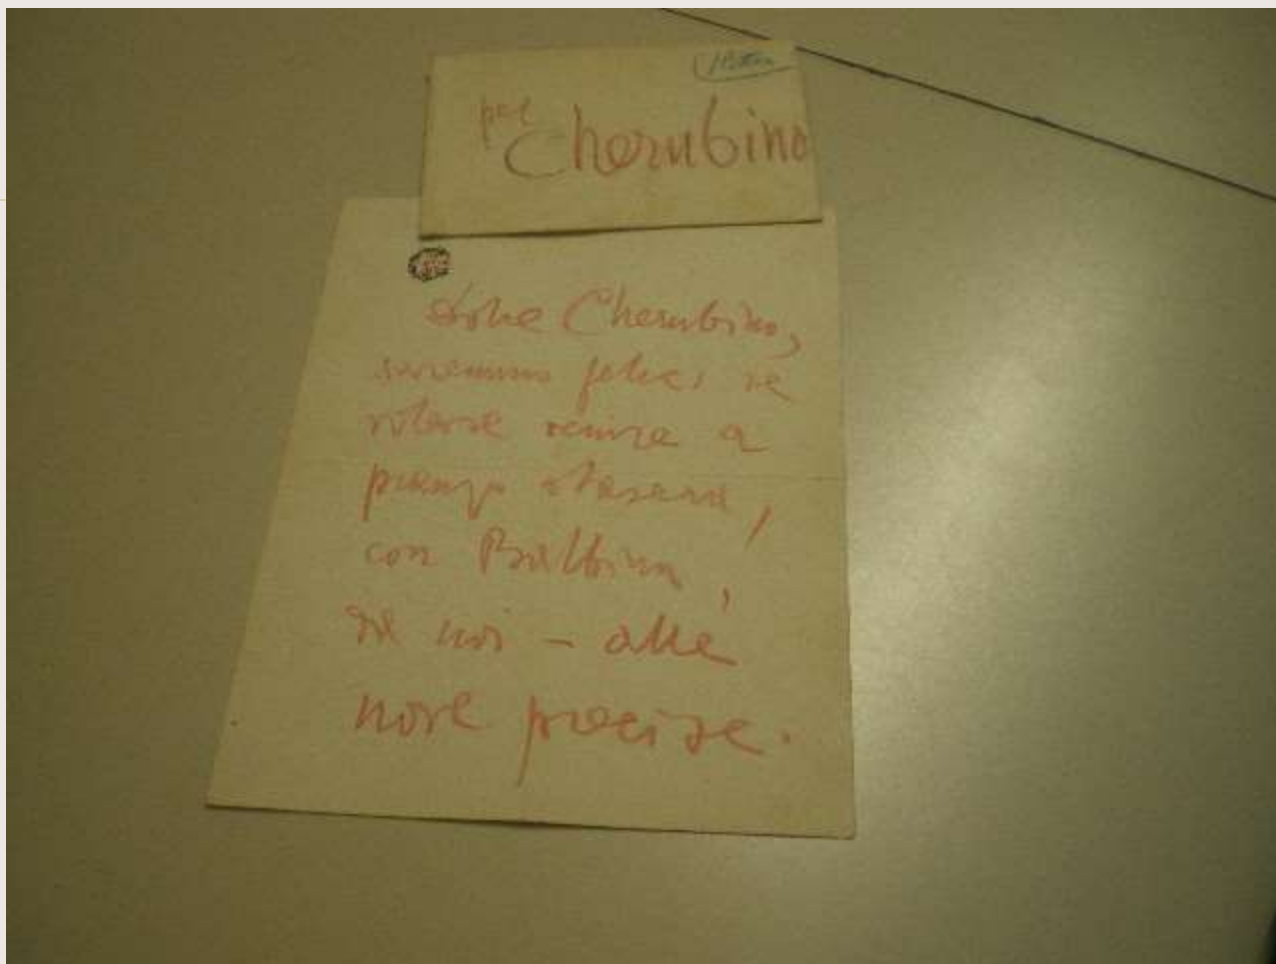 per
Cherubino
Dolce Cherubino,
saremmo felici se
voleste venire a
pranzo stasera,
con Balbina,
da noi – alle
nove precise.